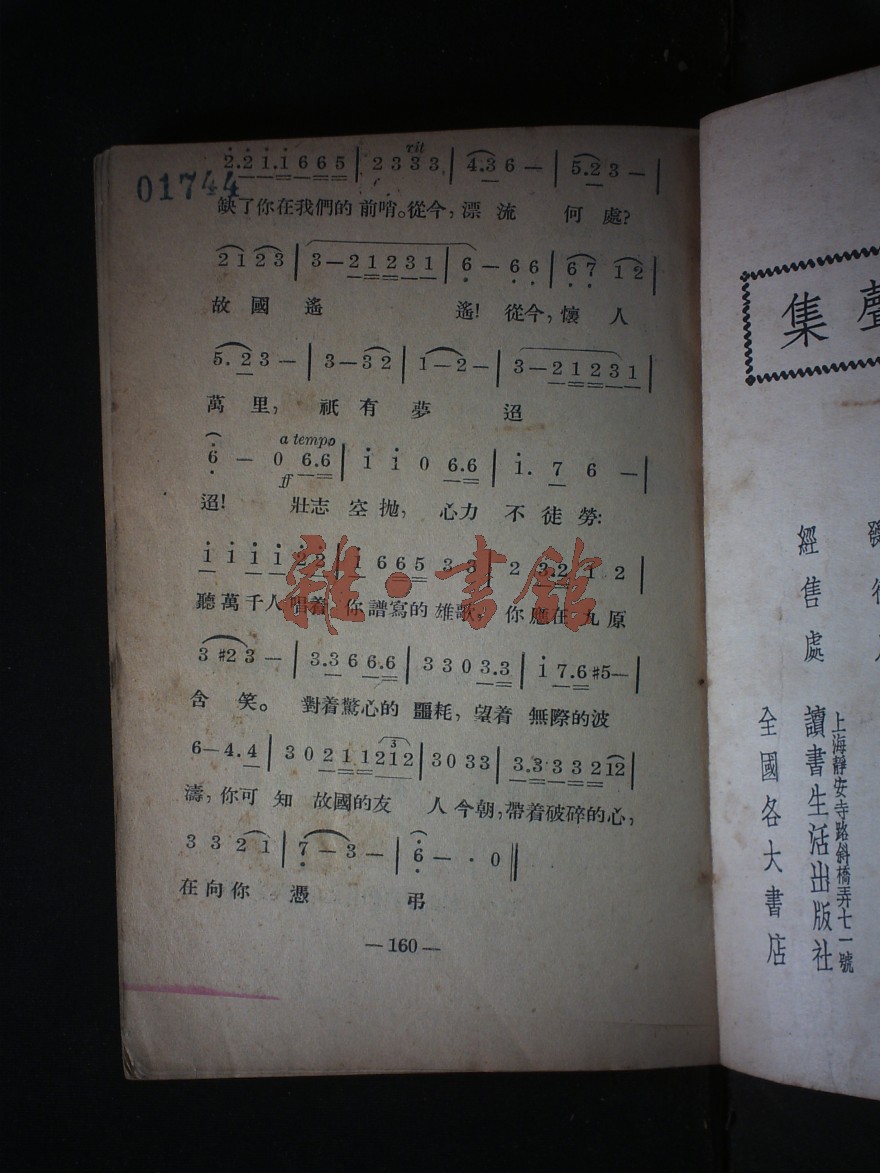 rit
2.2 1.1 6 6 5 | 2 3 3 3 | 4.3 6 — | 5.2 3 — |
01744
缺了你在我們的 前哨。從今, 漂 流 何 處?
2 1 2 3 | 3 — 2 1 2 3 1 | 6 — 6 6 | 6 7 1 2 |
故 國 遙 遙! 從今, 懷 人
5. 2 3 — | 3 — 3 2 | 1 — 2 — | 3 — 2 1 2 3 1 |
萬 里, 祇 有 夢 迢
a tempo
6 — 0 6.6 | i i 0 6.6 | i. 7 6 — |
ff
迢! 壯志 空 抛, 心力 不 徒 勞:
i i i i 2 2 | i 6 6 5 3 3 | 2 3.2 1 2 |
聽萬千人唱着 你譜寫的 雄歌, 你應在九原
3 #2 3 — | 3.3 6 6.6 | 3 3 0 3.3 | i 7.6 #5 — |
含 笑。 對着驚心的 噩耗, 望着 無際的波
3
6 — 4.4 | 3 0 2 1 1 2 1 2 | 3 0 3 3 | 3.3 3 3 2 1 2 |
濤, 你可 知 故國的友 人 今朝, 帶着破碎的心,
3 3 2 1 | 7 — 3 — | 6 — · 0 ‖
在向你 憑 弔
— 160 —
雜·書館
聲
集
經售處
上海靜安寺路斜橋弄七一號
讀書生活出版社
全國各大書店